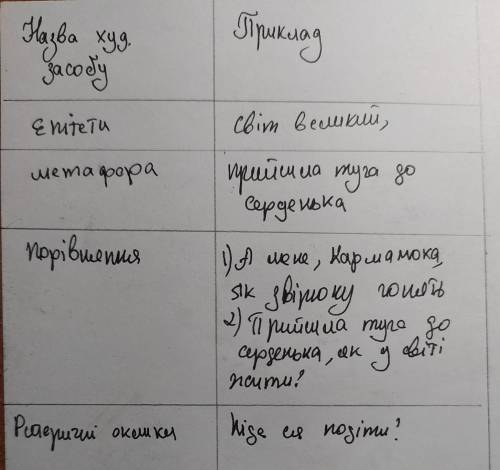 Назва худ.
засобу
Приклад
Епітети
світ великий,
метафора
прийшла туга до
серденька
порівняння
1) А мене, Кармалюка,
як звірюку гонять
2) Прийшла туга до
серденька, як у світі
жити?
Риторичні оклики
Ніде ся подіти!